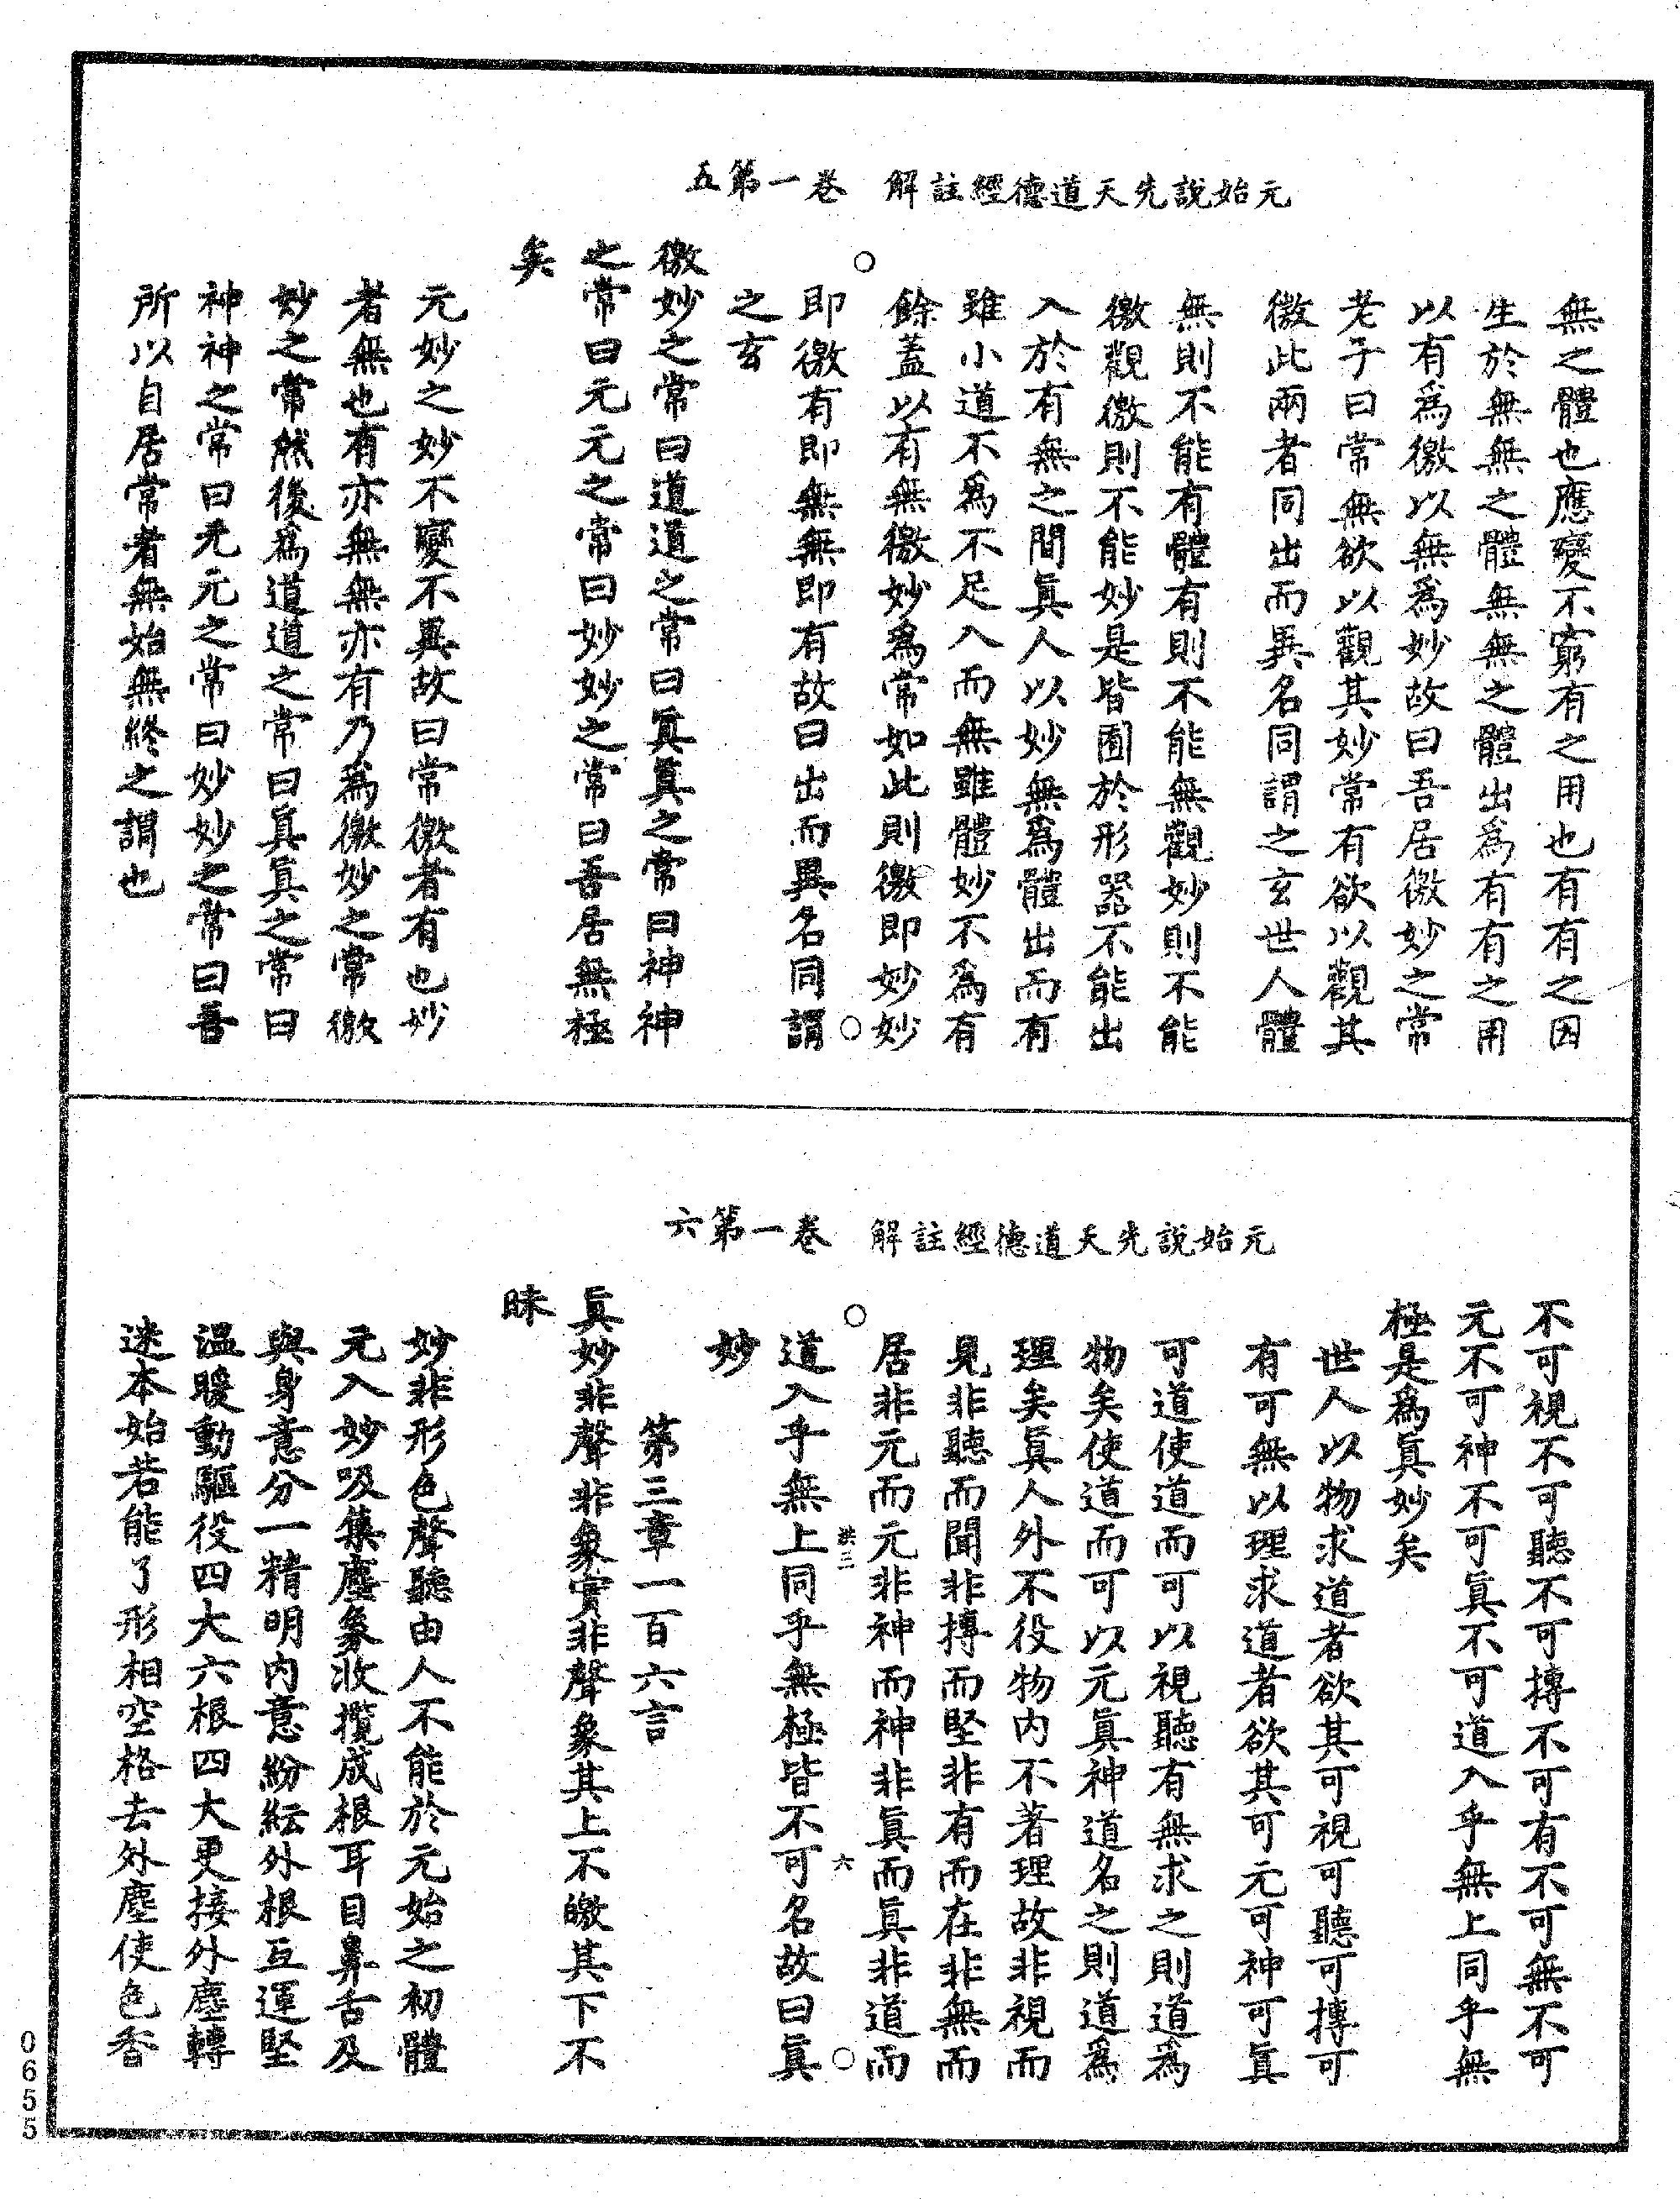 元始說先天道德經註解　卷一第五
無之體也應變不窮有之用也有有之因
生於無無之體無無之體出爲有有之用
以有爲徼以無爲妙故曰吾居徼妙之常
老子曰常無欲以觀其妙常有欲以觀其
徼此兩者同出而異名同謂之玄世人體
無則不能有體有則不能無觀妙則不能
徼觀徼則不能妙是皆囿於形器不能出
入於有無之間眞人以妙無爲體出而有
雖小道不爲不足入而無雖體妙不爲有
餘蓋以有無徼妙爲常如此則徼即妙妙
即徼有即無無即有故曰出而異名同謂
之玄
徼妙之常曰道道之常曰眞眞之常曰神神
之常曰元元之常曰妙妙之常曰吾居無極
矣
元妙之妙不變不異故曰常徼者有也妙
者無也有亦無無亦有乃爲徼妙之常徼
妙之常然後爲道道之常曰眞眞之常曰
神神之常曰元元之常曰妙妙之常曰吾
所以自居常者無始無終之謂也
元始說先天道德經註解　卷一第六
不可視不可聽不可摶不可有不可無不可
元不可神不可眞不可道入乎無上同乎無
極是爲眞妙矣
世人以物求道者欲其可視可聽可摶可
有可無以理求道者欲其可元可神可眞
可道使道而可以視聽有無求之則道爲
物矣使道而可以元眞神道名之則道爲
理矣眞人外不役物內不著理故非視而
見非聽而聞非摶而堅非有而在非無而
居非元而元非神而神非眞而眞非道而
洪三　六
道入乎無上同乎無極皆不可名故曰眞
妙
第三章一百六言
眞妙非聲非象實非聲象其上不皦其下不
昧
妙非形色聲聽由人不能於元始之初體
元入妙吸集塵象收攬成根耳目鼻舌及
與身意分一精明內意紛紜外根互運堅
溫暖動驅役四大六根四大更接外塵轉
迷本始若能了形相空格去外塵使色香
0655